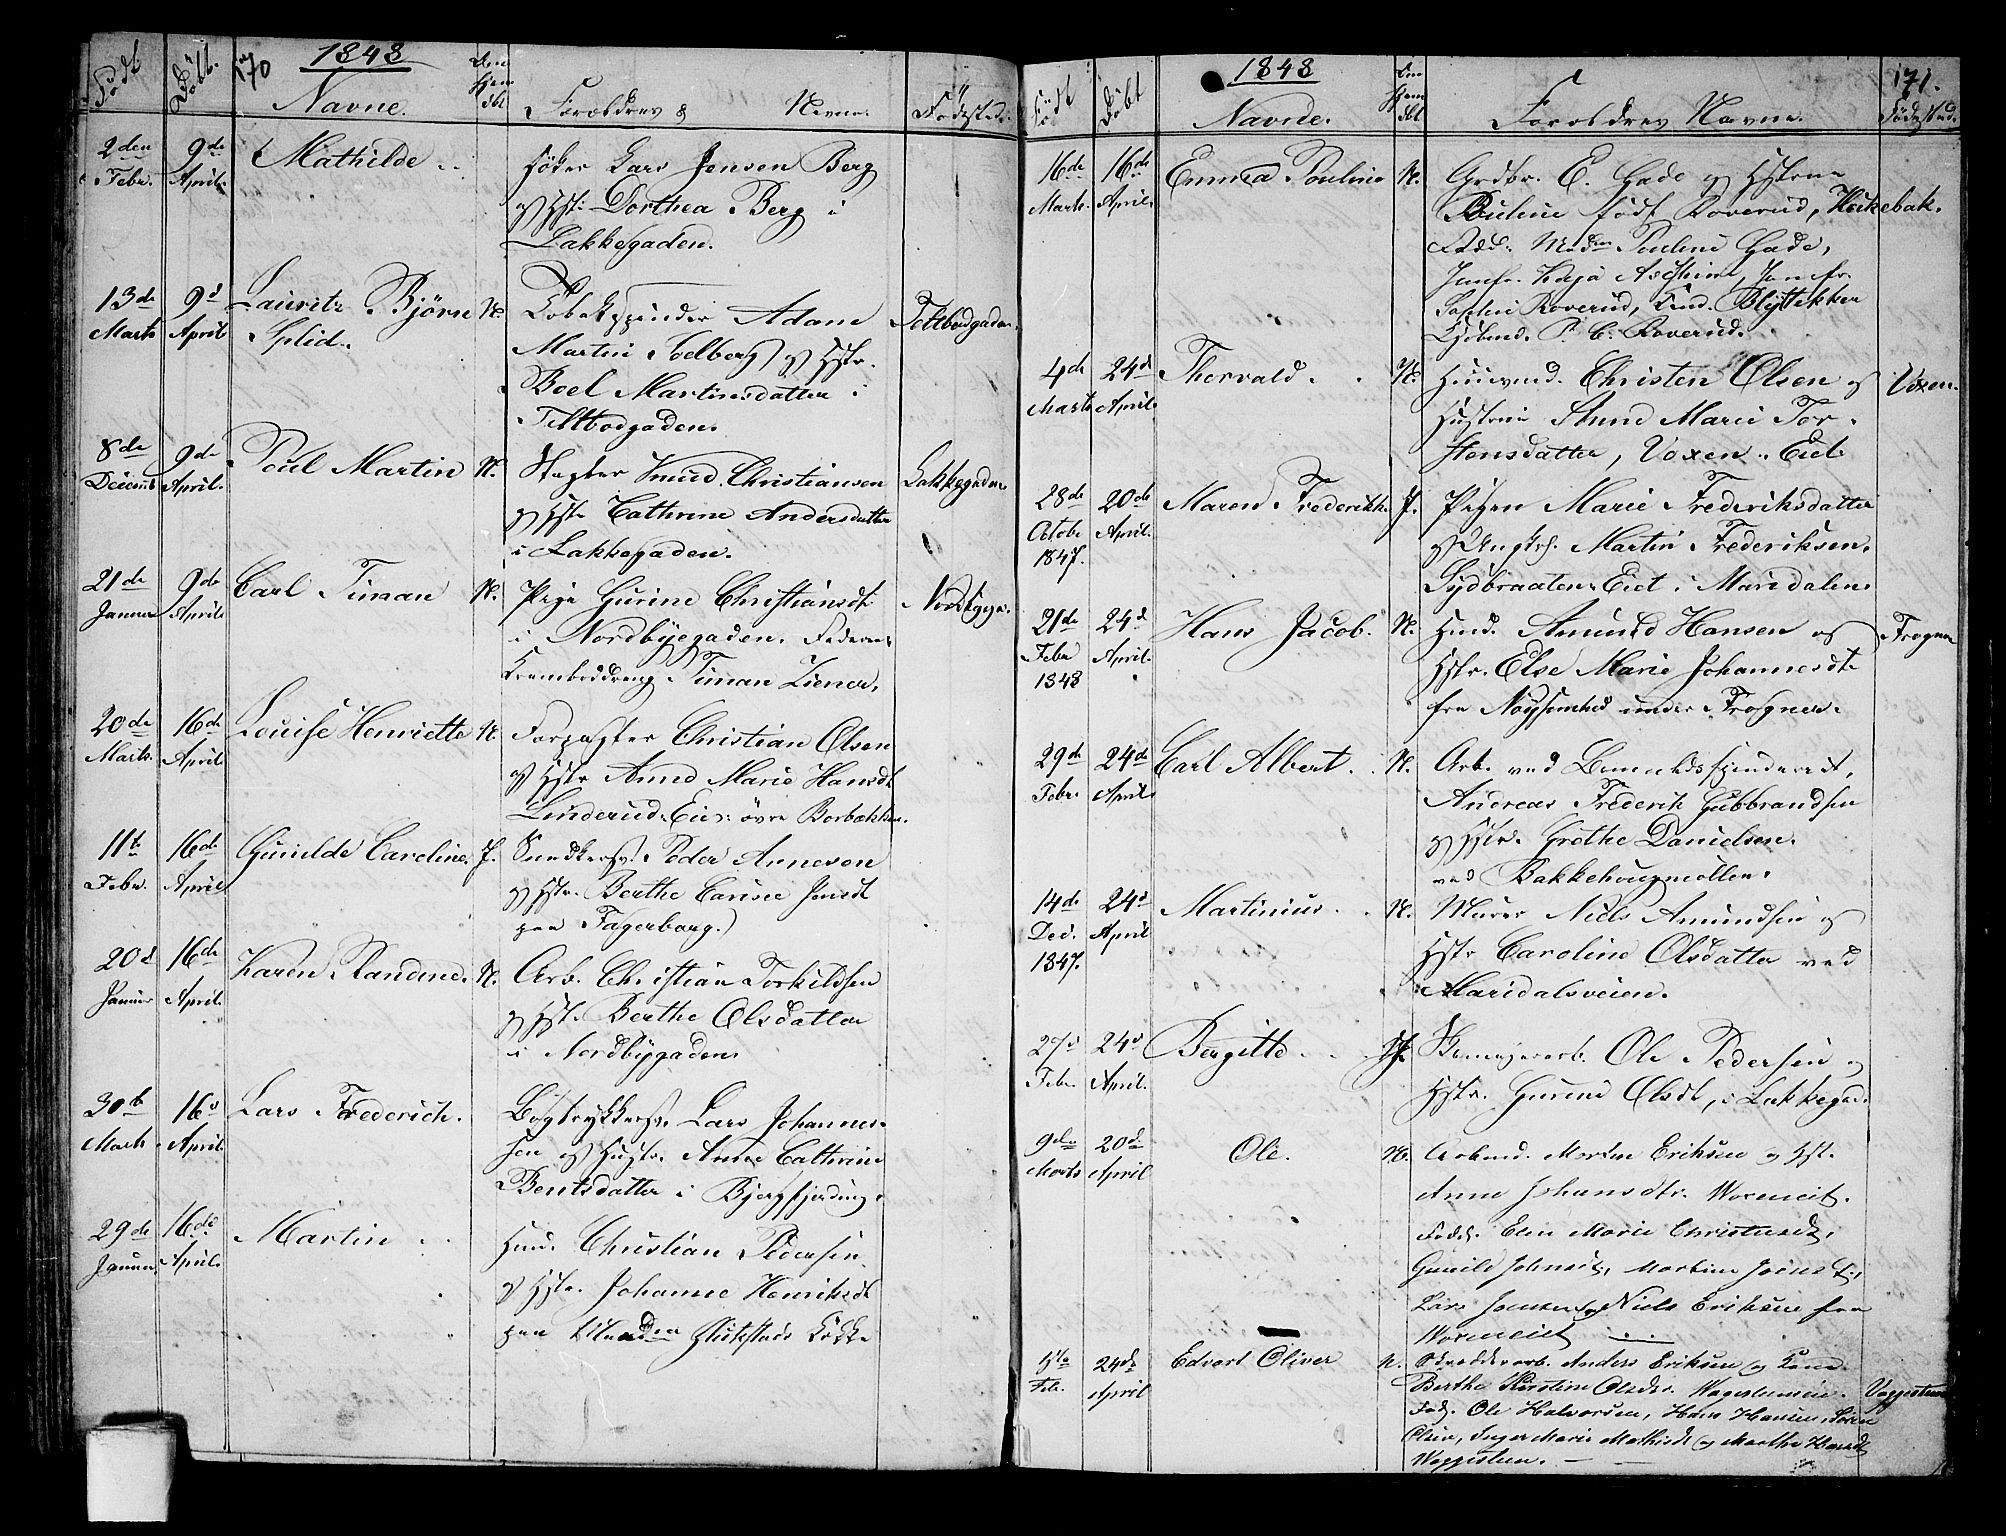 Født
Døbt.
170
1848
Navne.
Forældres & Navne.
Fødested.
2den Febr.
9de April.
Mathilde
Høker Lars Jensen Berg
og Hst: Dorthea Berg i
Lakkegaden.
13de Marts
9d April
Lauritz Bjørn
Splid.
N.
Tobakspinder Adam
Martin Soelberg og Hstr.
Boel Martinsdatter i
Teltbodgaden.
Teltbodgaden
8de Decemb
9de April.
Poul Martin
N.
Slagter Knud Christiansen
og Hstr Cathrine Andersdatter
i Lakkegaden.
Lakkegaden
21de Januar
9de April
Carl Timan
N.
Pige Gurine Christiansdt
i Nordbyegaden. Faderen
Kramboddreng Timan Ziener.
20de Marts.
16de April
Louise Henriette
N.
Forpagter Christian Olsen
og Hstr Anne Marie Hansdt
Linderud Eie: øvre Borbakken.
11te Febr.
16de April
Gunilde Caroline.
J.
Snedkersv. Peder Annesen
og Hstr. Berthe Hansdt
paa Fagerborg.
20d Januar
16de April.
Karen Randine.
N.
Arb. Christian Torkildsen
og Hst. Berthe Olsdatter
i Nordbygaden
30te Marts
16d April.
Lars Frederich.
Bogtrykkersv. Lars Johannes-
sen og Hustr. Anne Cathrine
Bentsdatter i Bjergfjerding.
29de Januar.
16de April.
Martin
Huusm. Christian Pedersen
og Hstr. Johanne Henriksdt
paa Løkke
Født
Døbt
1848
Navne.
Forældres Navne.
171.
Fødested.
16de Marts.
16de April.
Emma Pauline
N.
E. Gade og Hstrue
Pauline født Roverud, Hakebak.
Fadd: Madm Pauline Gade,
Jomfr. Kaja Jomfr.
Roverud,
Kjøbmd. P. C. Roverud.
4de Marts
24d April.
Thorvald.
N.
Huusmd. Christen Olsen og
Hustrue Anne Marie Tor-
stensdatter, Voxen-Eiet
Voxen.
28de Octobr 1847.
20de April.
Maren Frederikke.
J.
Pigen Marie Frederiksdatter
og Ungkrl. Martin Frederiksen.
Sydbraaten Eiet i Maridalen
21de Febr 1848
24d April.
Hans Jacob.
N.
Huusmd. Amund Hansen og
Hstr. Else Marie Johannesdt
fra Nøysomhed under Frogner.
Frogner
29de Febr.
24de April
Carl Albert.
N.
Arb. ved Bomuldsspinderiet,
Andreas Frederik Gulbrandsen
og Hstr. Grethe Danielsen.
ved Bakkehougmøllen.
14de Dec. 1847.
24d April
Martinius
N.
Murer Niels Amundsen og
Hstr Caroline Olsdatter ved
Maridalsveien.
27d Febr.
24d April.
Bergitte
J.
Ole Pedersen og
Hstr. Gurine Olsdt, i Lakkegad.
9de Marts
20d April
Ole.
N.
Arbmd. Morten Eriksen og Hst.
Anne Johansdtr. Woxeneiet.
Fadd. Elen Marie Christensdt,
Gunild
Lars Jonsen og Niels Eriksen fra
Woxeneiet
Febr.
24de April
Edvart Oliver
N.
Skrædderarb. Anders Eriksen og Kone
Berthe Kirstine Olsdtr. Waggesteneie.
Fad. Ole Halvorsen, Hans Hansen, Søren
Olsen, Inger Marie Mathisdt og Marthe Hansdt
Waggesteen.
Vaggesteen